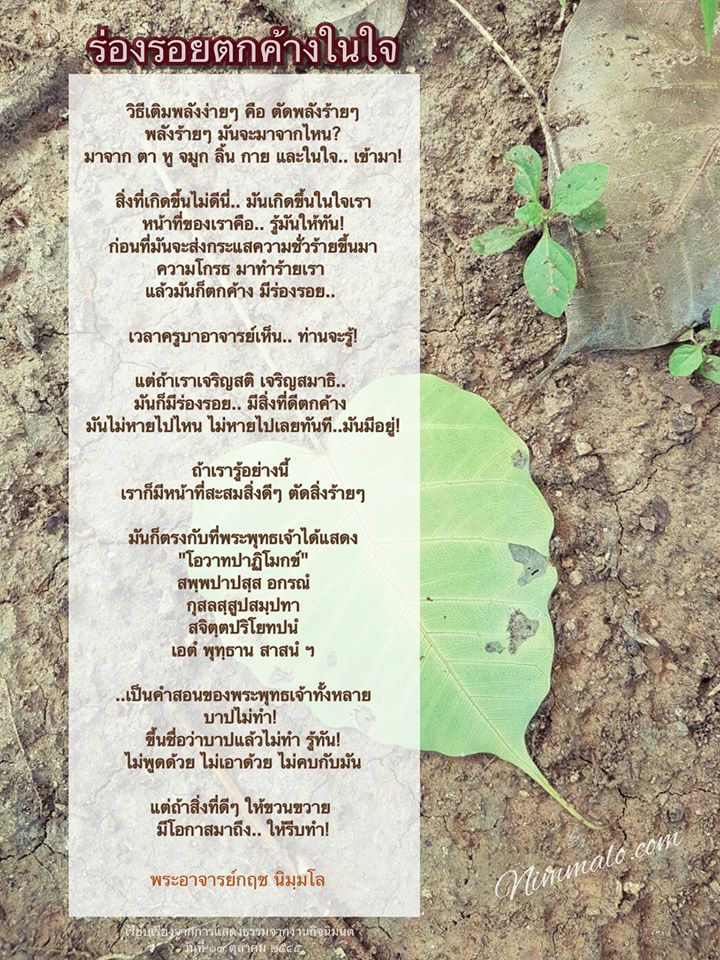 ร่องรอยตกค้างในใจ
วิธีเติมพลังง่ายๆ คือ ตัดพลังร้ายๆ
พลังร้ายๆ มันจะมาจากไหน?
มาจาก ตา หู จมูก ลิ้น กาย และในใจ.. เข้ามา!
สิ่งที่เกิดขึ้นไม่ดีนี่.. มันเกิดขึ้นในใจเรา
หน้าที่ของเราคือ.. รู้มันให้ทัน!
ก่อนที่มันจะส่งกระแสความชั่วร้ายขึ้นมา
ความโกรธ มาทำร้ายเรา
แล้วมันก็ตกค้าง มีร่องรอย..
เวลาครูบาอาจารย์เห็น.. ท่านจะรู้!
แต่ถ้าเราเจริญสติ เจริญสมาธิ..
มันก็มีร่องรอย.. มีสิ่งที่ดีตกค้าง
มันไม่หายไปไหน ไม่หายไปเลยทันที..มันมีอยู่!
ถ้าเรารู้อย่างนี้
เราก็มีหน้าที่สะสมสิ่งดีๆ ตัดสิ่งร้ายๆ
มันก็ตรงกับที่พระพุทธเจ้าได้แสดง
"โอวาทปาฏิโมกข์"
สพฺพปาปสฺส อกรณํ
กุสลสฺสูปสมฺปทา
สจิตฺตปริโยทปนํ
เอตํ พุทฺธาน สาสนํ ฯ
..เป็นคำสอนของพระพุทธเจ้าทั้งหลาย
บาปไม่ทำ!
ขึ้นชื่อว่าบาปแล้วไม่ทำ รู้ทัน!
ไม่พูดด้วย ไม่เอาด้วย ไม่คบกับมัน
แต่ถ้าสิ่งที่ดีๆ ให้ขวนขวาย
มีโอกาสมาถึง.. ให้รีบทำ!
พระอาจารย์กฤช นิมฺมโล
Nimmalo.com
เรียบเรียงจากการแสดงธรรมจากงานกิจนิมนต์
วันที่ ตุลาคม